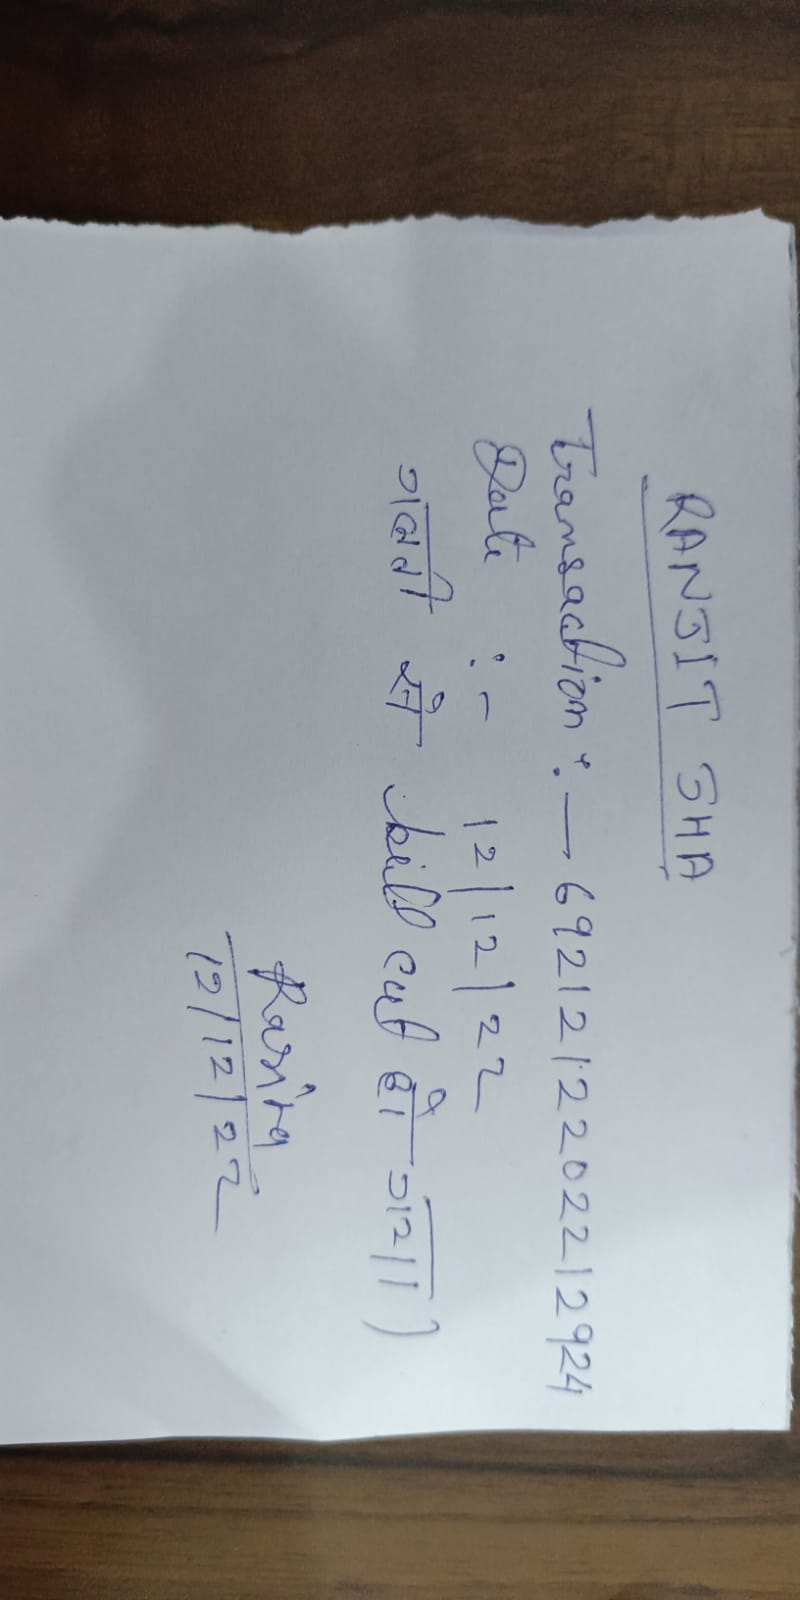 RANJIT JHA
Transaction :— 69212122022212924
Date :- 12/12/22
गलती से bill cut हो गया।)
12/12/22